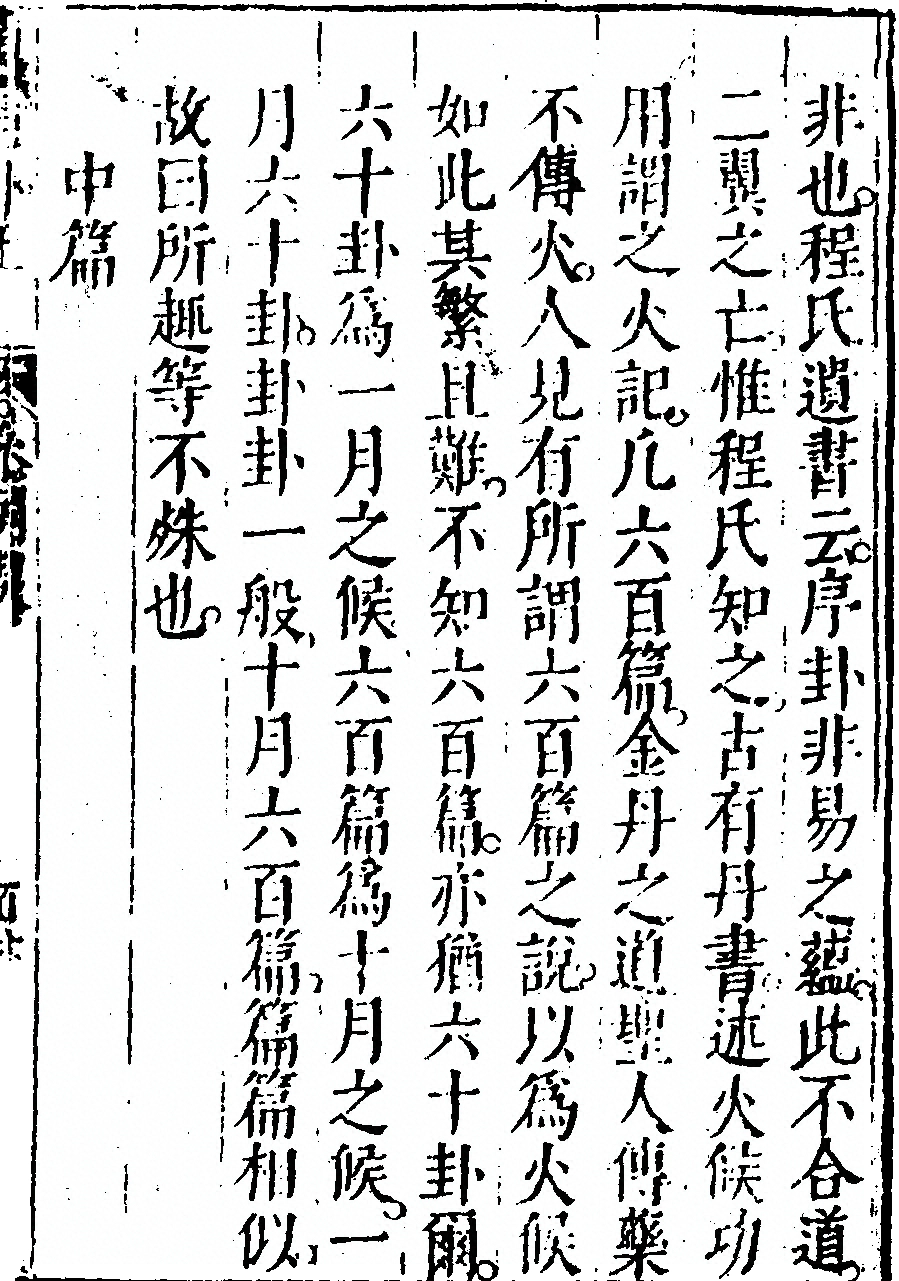 非也程氏遺書云序卦非易之蘊此不合道
二翼之亡惟程氏知之古有丹書述火候功
用謂之火記凡六百篇金丹之道聖人傳藥
不傳火人見有所謂六百篇之說以爲火候
如此其繁且難不知六百篇亦猶六十卦爾
六十卦爲一月之候六百篇爲十月之候一
月六十卦卦卦一般十月六百篇篇篇相似
故曰所趣等不殊也
中篇